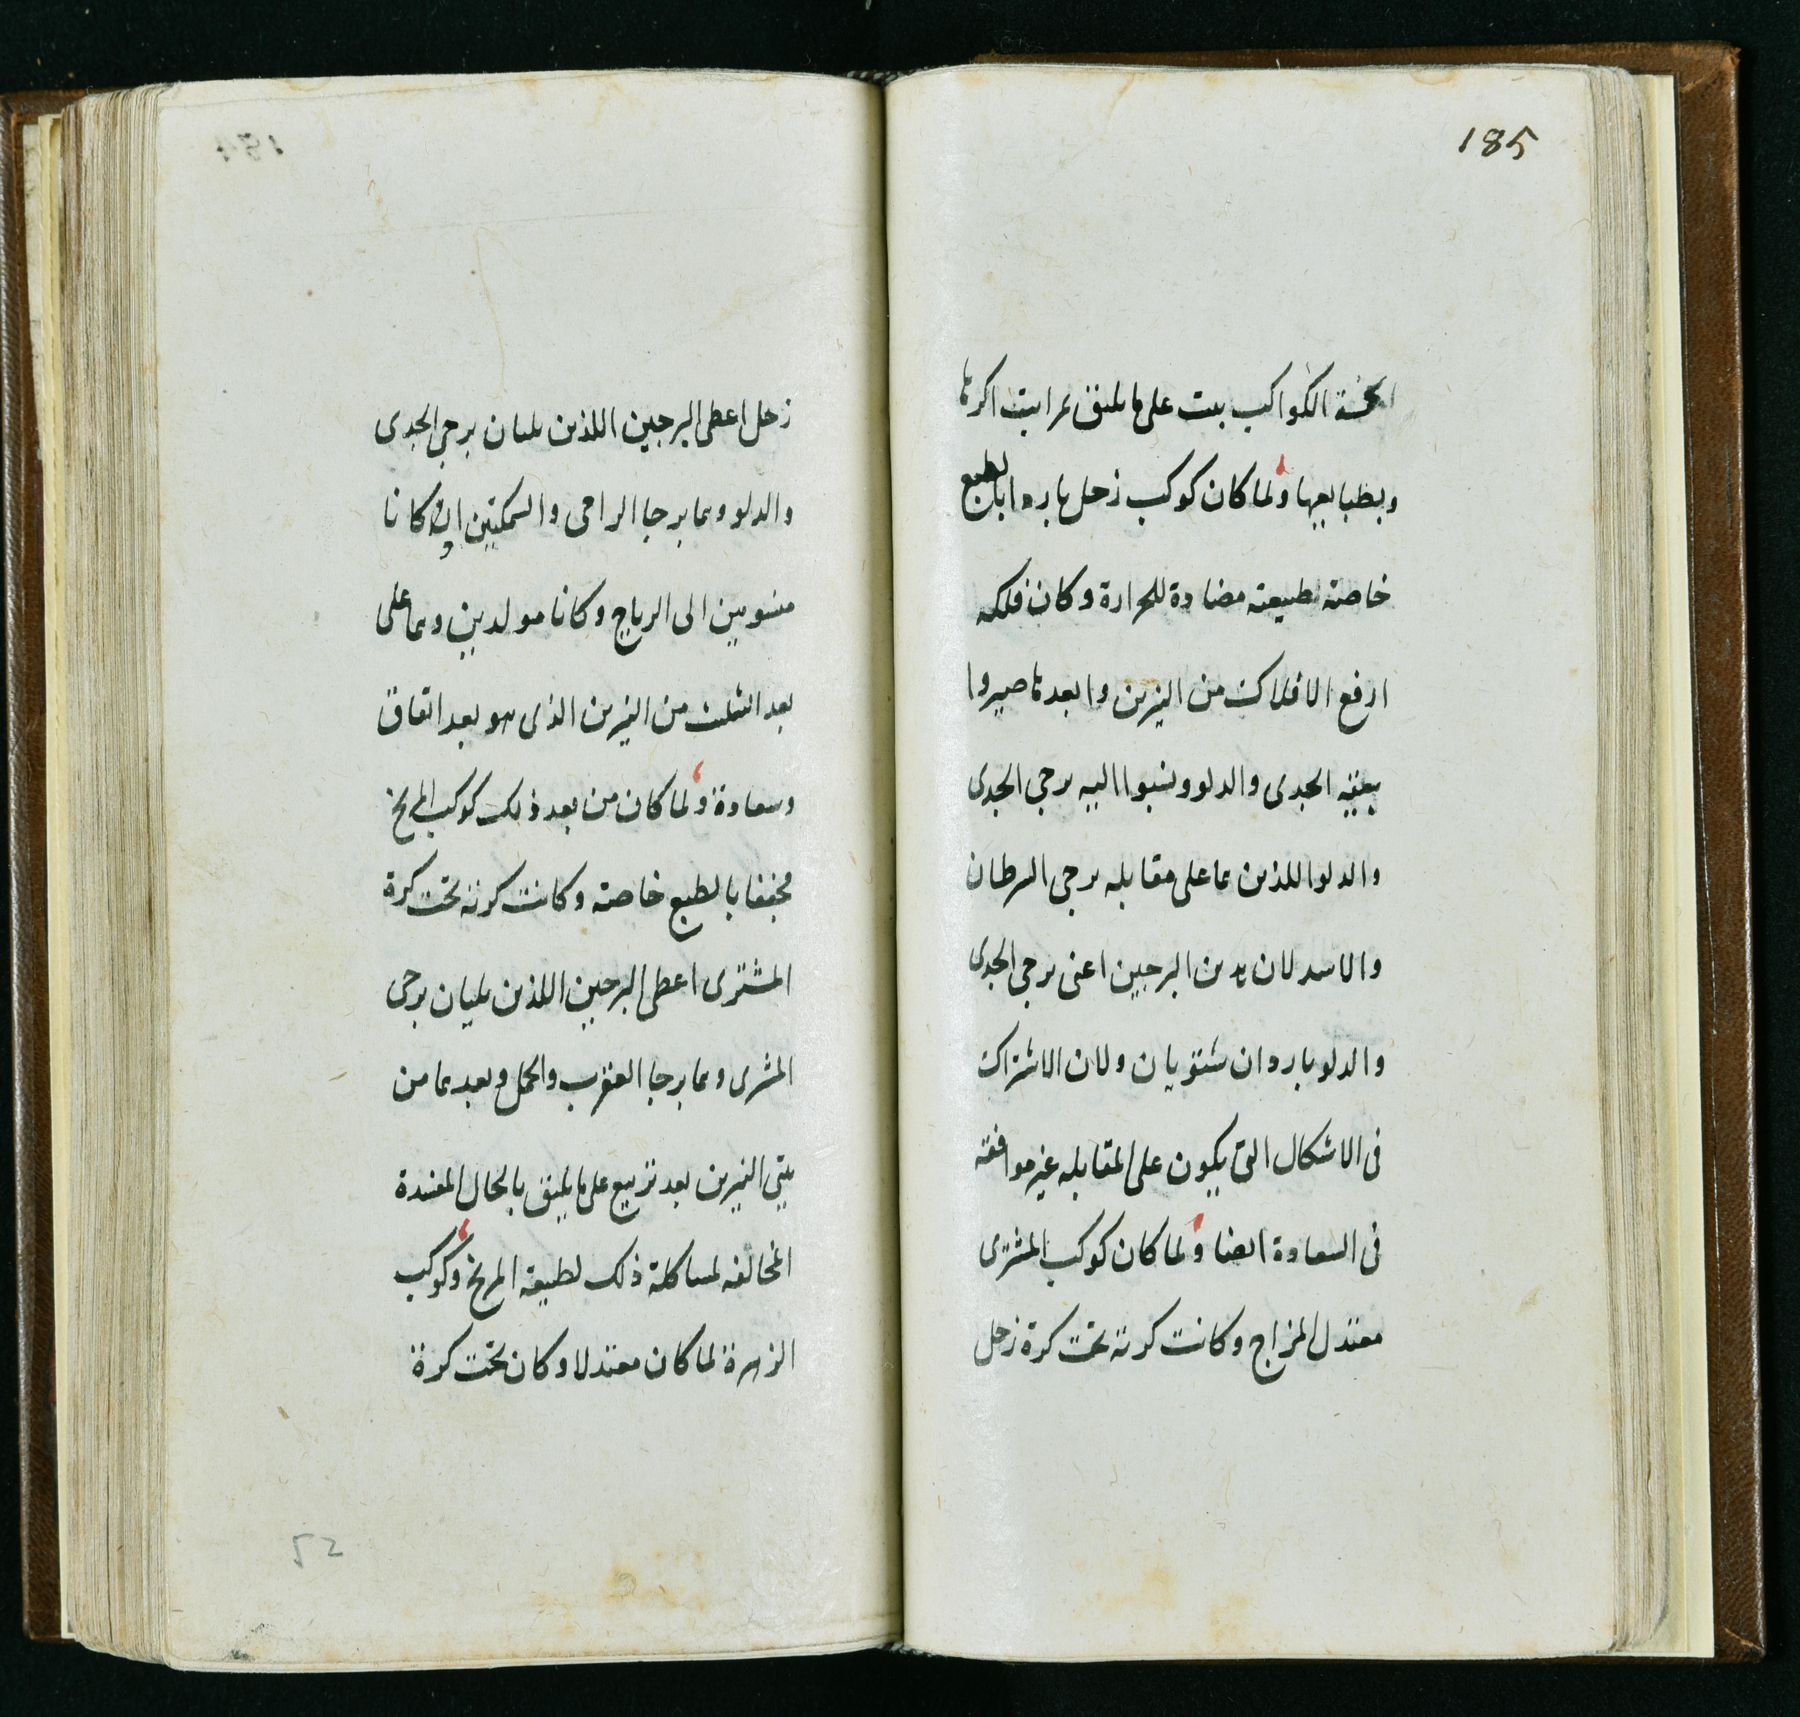 185
الخمسة الكواكب بيت على ما يليق بمراتب اكرها
وبطبايعها ولما كان كوكب زحل باردا بالطبع
خاصته لطبيعته مضادة للحرارة وكان فلكه
ارفع الافلاك من النيرين وابعدها صيروا
بيته الجدى والدلو ونسبوا اليه برجى الجدى
والدلو اللذين هما على مقابله برجى السرطان
والاسد لان هذين البرجين اعنى برجى الجدى
والدلو باردان شتويان ولان الاشتراك
فى الاشكال التى يكون على المقابله غير موافقه
فى السعادة ايضا ولما كان كوكب المشترى
معتدل المزاج وكانت كرته تحت كرة زحل
زحل اعطى البرجين اللذين يليان برجى الجدى
والدلو وهما برجا الرامى والسمكتين اذ كانا
منسوبين الى الرياح وكانا مولدين وهما على
بعد الثلث من النيرين الذى هو بعد اتفاق
وسعادة ولما كان من بعد ذلك كوكب المريخ
مجففا بالطبع خاصته وكانت كرته تحت كرة
المشترى اعطى البرجين اللذين يليان برجى
المشترى وهما برجا العقرب والحمل وبعدهما من
بيتى النيرين بعد تربيع على ما يليق بالحال المفسدة
المخالفه لمشاكلة ذلك لطبيعة المريخ وكوكب
الزهرة لما كان معتدلا وكان تحت كرة
52